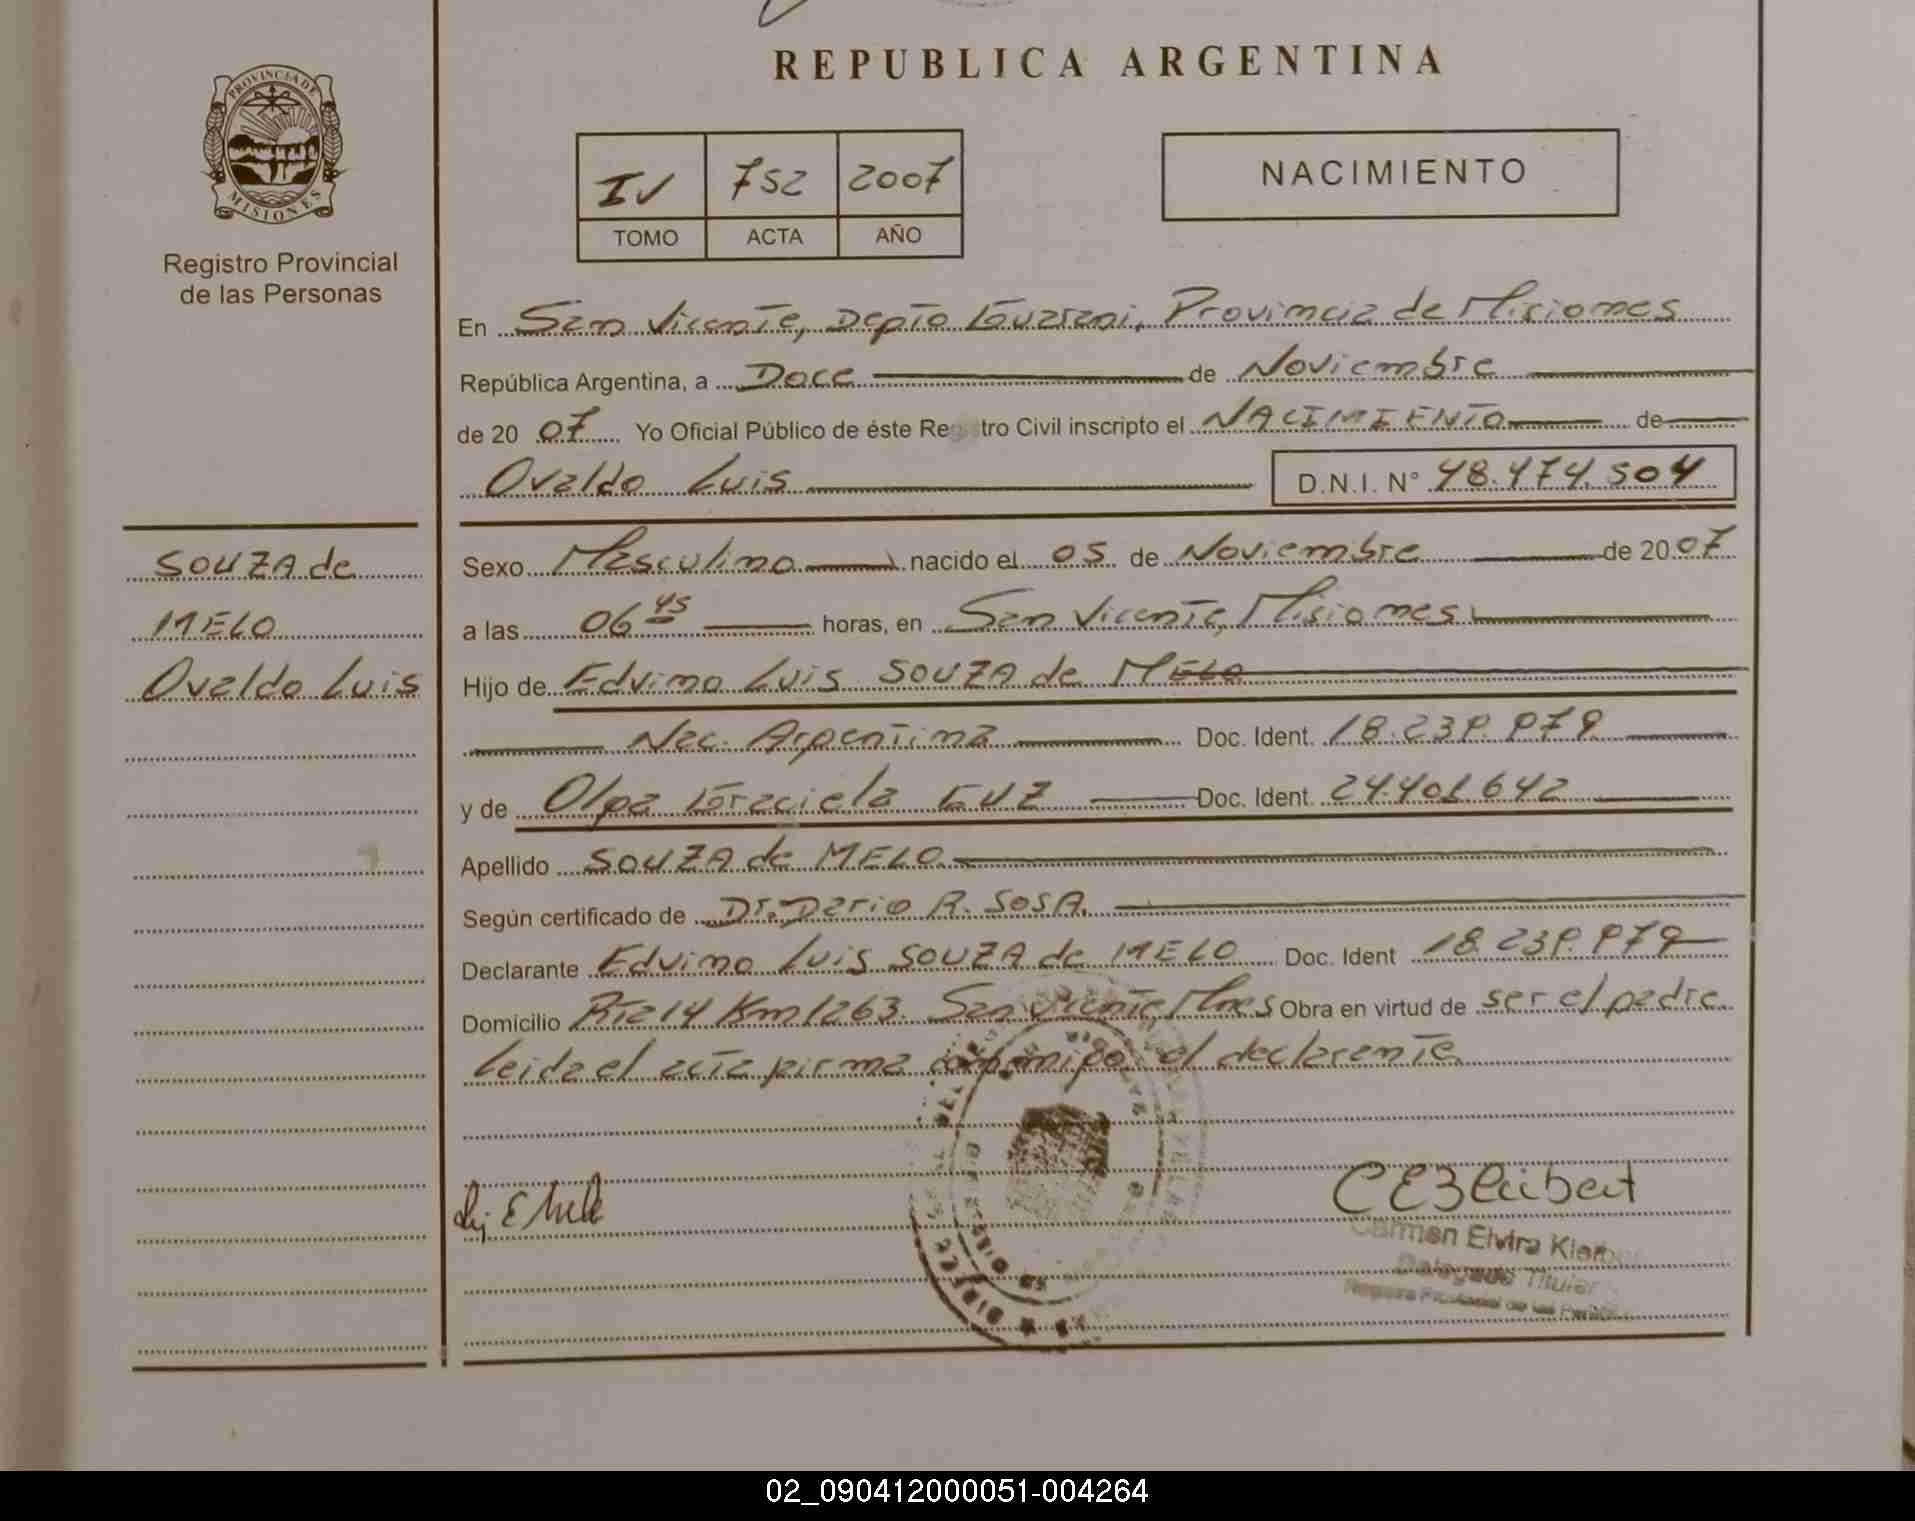 REPUBLICA ARGENTINA
PROVINCIA DE
MISIONES
Registro Provincial
de las Personas
IV 752 2007
TOMO ACTA AÑO
NACIMIENTO
En San Vicente, Depto Guarani, Provincia de Misiones
República Argentina, a Doce de Noviembre
de 2007 Yo Oficial Público de éste Registro Civil inscripto el NACIMIENTO de
Ovaldo Luis D.N.I. N° 48.474.504
SOUZA de
MELO
Ovaldo Luis
Sexo Masculino nacido el 05 de Noviembre de 2007
a las 06 45 horas, en San Vicente, Misiones
Hijo de Edvino Luis SOUZA de MELO
Nac. Argentina Doc. Ident. 18.239.979
y de Olga Graciela Doc. Ident. 24.401.642
Apellido SOUZA de MELO
Según certificado de Dr. Dario R. SOSA.
Declarante Edvino Luis SOUZA de MELO Doc. Ident 18.239.979
Domicilio Rta 14 Km 1263. San Vicente, Mnes Obra en virtud de ser el padre
Leida el acta firma conmigo el declarante
Carmen Elvira
Delegado Titular
Registro Provincial de las Personas
02_090412000051-004264